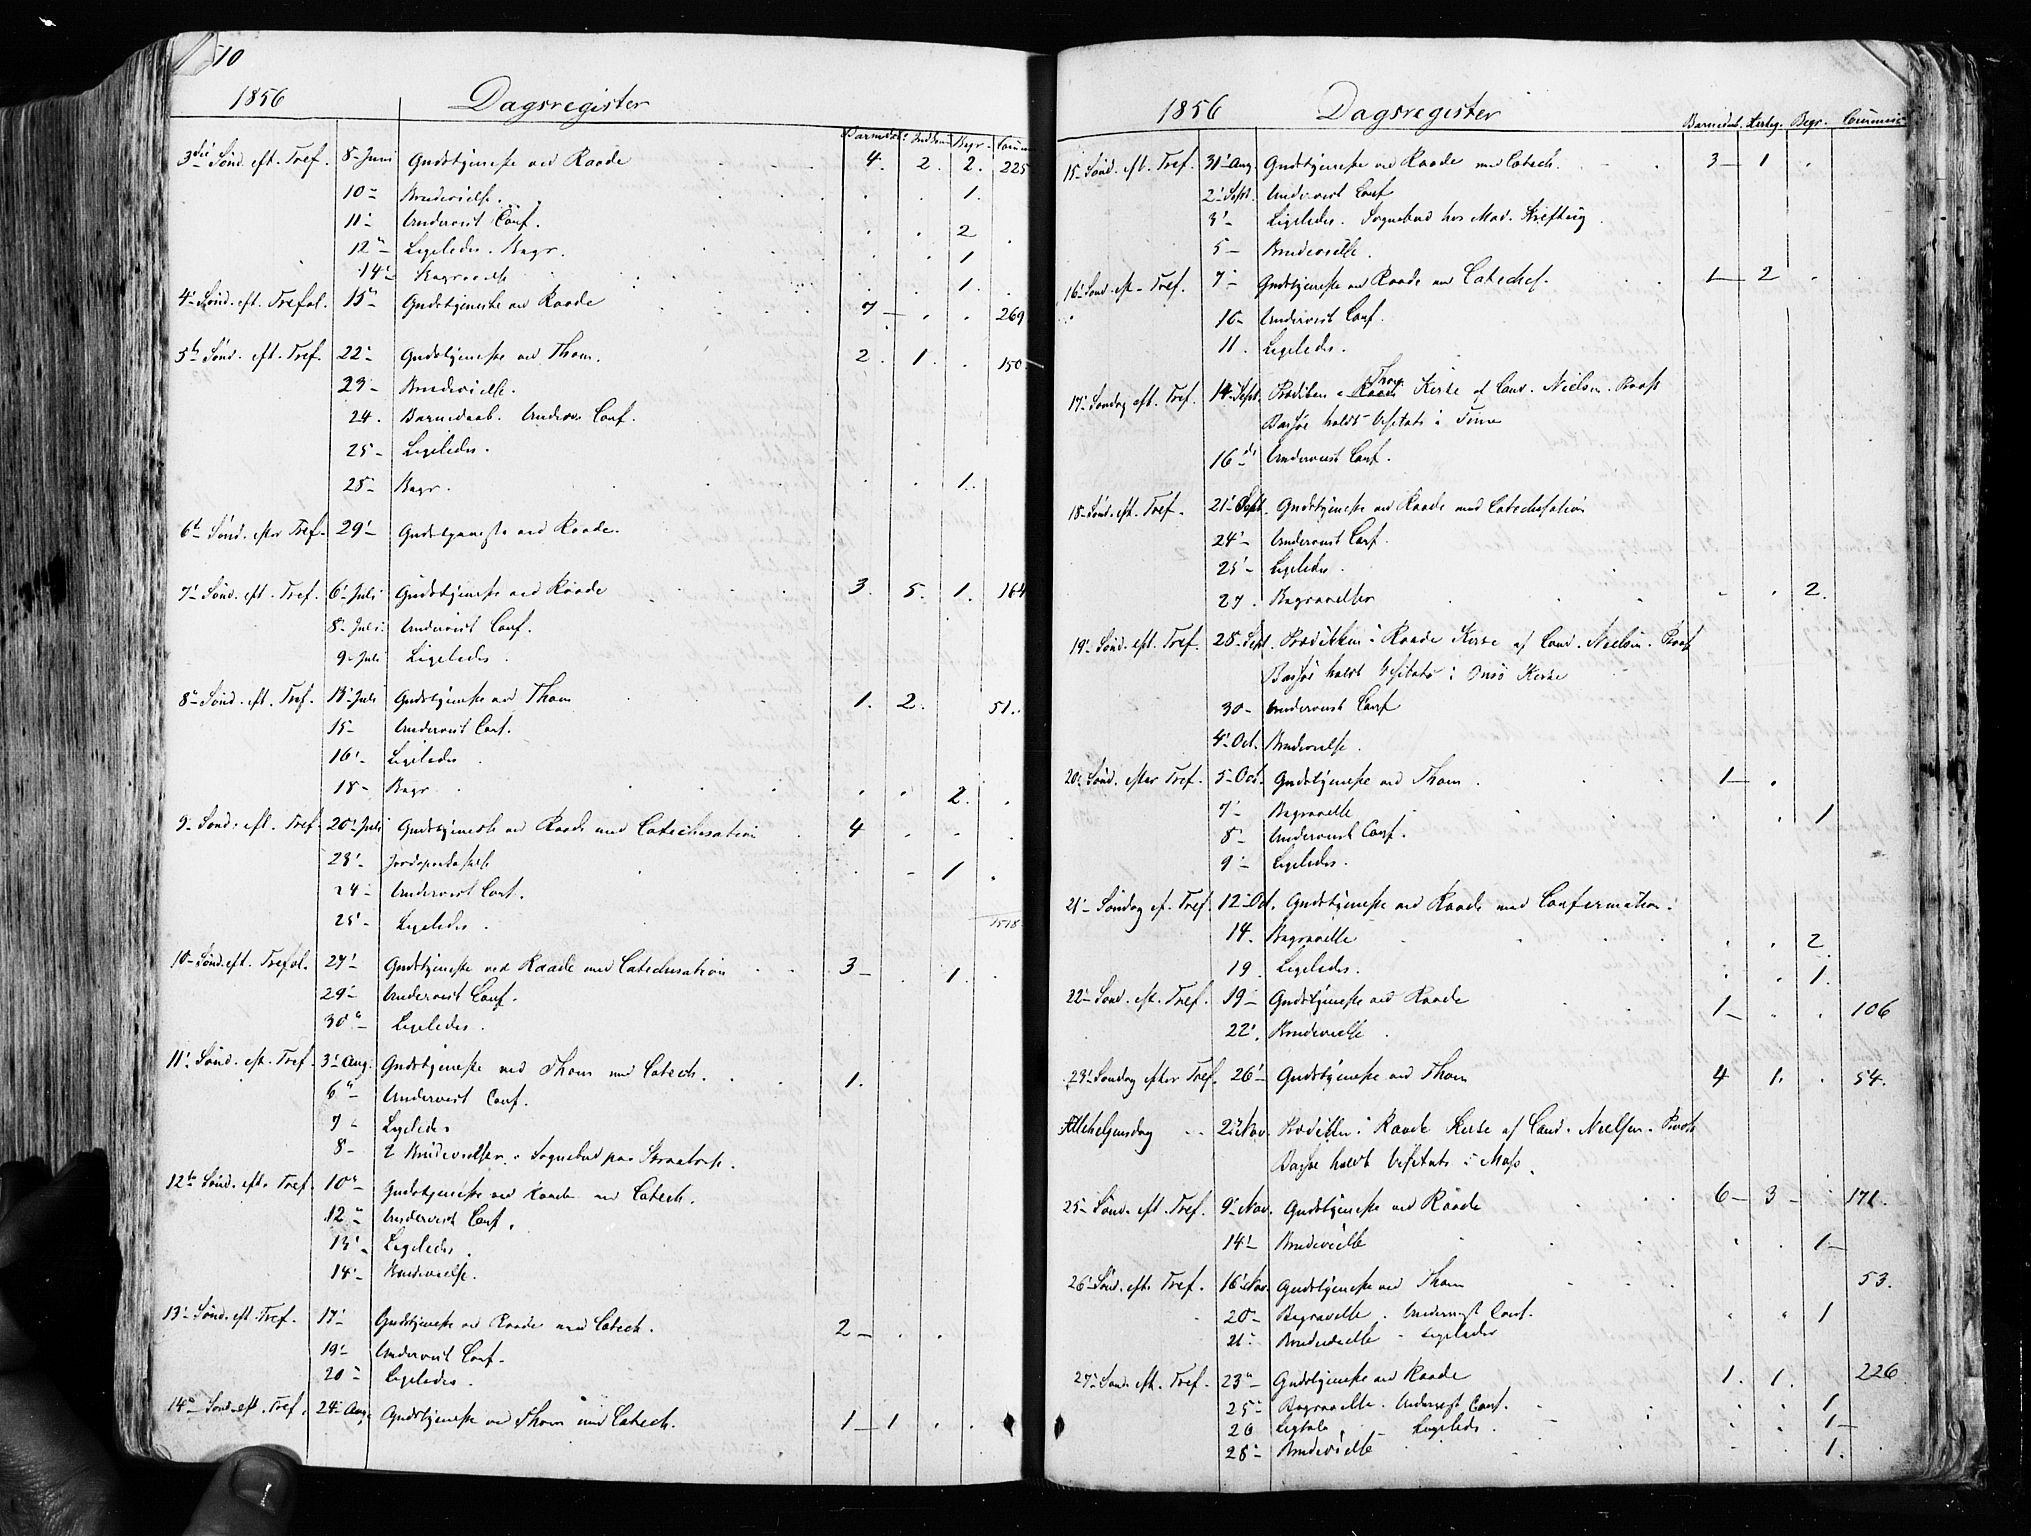 510
1856 Dagsregister
Barnedåb. Indled. Begr. Comm
3die Sønd. eft. Tref. 8- Juni Gudstjeneste ved Raade 4. 2. 2. 225
10- Brudevielse. 1.
11- Undervist Conf. 2
12- Ligeledes. Begr. 1
14- Begravelse 1.
4- Sønd. eft. Trefol. 15- Gudstjeneste ved Raade 7 269
5te Sønd. eft. Tref. 22- Gudstjeneste ved Thom. 2. 1. 150
23- Brudevielse.
24. Barnedaab. Underv. Conf.
25- Ligeledes.
28- Begr. 1.
6te Sønd. efter Tref. 29- Gudstjeneste ved Raade.
7- Sønd. eft. Tref. 6- Juli Gudstjeneste ved Raade 3. 5. 1. 164
8- Juli. Undervist Conf.
9- Juli Ligeledes.
8- Sønd. eft. Tref. 13- Juli Gudstjeneste ved Thom 1. 2. 51.
15- Undervist Conf.
16- Ligeledes
18- Begr 2.
9- Sønd. eft. Tref. 20- Juli Gudstjeneste ved Raade med Catechisation 4
23- Jordspaakastelse 1
24- Undervist Conf.
25- Ligeledes. 1518
10- Sønd. eft. Trefol. 27- Gudstjeneste ved Raade med Catechisation 3 1.
29- Undervist Conf.
30- Ligeledes.
11- Sønd. eft. Tref. 3- Aug. Gudstjeneste ved Thom med Catech. 1.
6- Undervist Conf.
7- Ligeledes
8- 2 Brudevielser. Sognebud paa
12te Sønd. eft. Tref. 10- Gudstjeneste ved Raade med Catech.
12- Undervist Conf.
13- Ligeledes.
14- Brudevielse.
13- Sønd. eft. Tref. 17- Gudstjeneste ved Raade med Catech. 2
19- Undervist Conf.
20- Ligeledes.
14- Sønd. eft. Tref. 24- Aug. Gudstjeneste ved Thom med Catech. 1 1
1856 Dagsregister
Barnedåb. Begr. Commun
15- Sønd. eft. Tref. 31- Aug. Gudstjeneste ved Raade med Catech. 3 1
2- Sept. Undervist Conf
3- Ligeledes. Sognebud hos Mad. Krefting
5- Brudevielse.
16- Sønd. eft. Tref. 7- Gudstjeneste ved Raade med Catechef. 1 2
10- Undervist Conf.
11. Ligeledes.
17- Søndag eft. Tref. 14- Sept. Prædiken i Thom Kirke af Cand. Nielsen. Provst
Barfoe holdt Visitats i
16- Undervist Conf.
18- Sønd. eft. Tref. 21- Sept. Gudstjeneste ved Raade med Catechisation
24- Undervist Conf.
25- Ligeledes.
27. Begravelser 2.
19- Sønd. eft. Tref. 28- Sept. Prædiken i Raade Kirke af Cand. Nielsen. Provst
Barfoe holdt Visitats i Onsø Kirke
30- Undervist Conf
4- Oct. Brudevielse.
20- Sønd. efter Tref. 5- Oct. Gudstjeneste ved Thom. 1
7- Begravelse 1
8- Undervist Conf.
9- Ligeledes.
21- Søndag ef. Tref. 12- Oct. Gudstjeneste ved Raade med Confirmation.
14. Begravelse 2
19. Ligeledes. 1.
22- Sønd. eft. Tref. 19- Gudstjeneste ved Raade 1 106
22. Brudevielse
23- Søndag efter Tref. 26- Gudstjeneste ved Thom 4 1. 54.
Allehelgensdag 2- Nov. Prædiken i Raade Kirke af Cand. Nielsen. Provst
Barfoe holdt Visitats i Moss.
25- Sønd. eft. Tref. 9- Nov. Gudstjeneste ved Raade 6 3 171.
14- Brudevielse 1
26- Sønd. eft. Tref. 16- Nov. Gudstjeneste ved Thom 53.
20- Begravelse. Undervist Conf. 1
21- Brudevielse - Ligeledes
27- Sønd. eft. Tref. 23- Gudstjeneste ved Raade 1. 1. 226
25- Begravelse. Undervist Conf. 1
26 Ligtale Ligeleds. 1
28- Brudevielse 1.